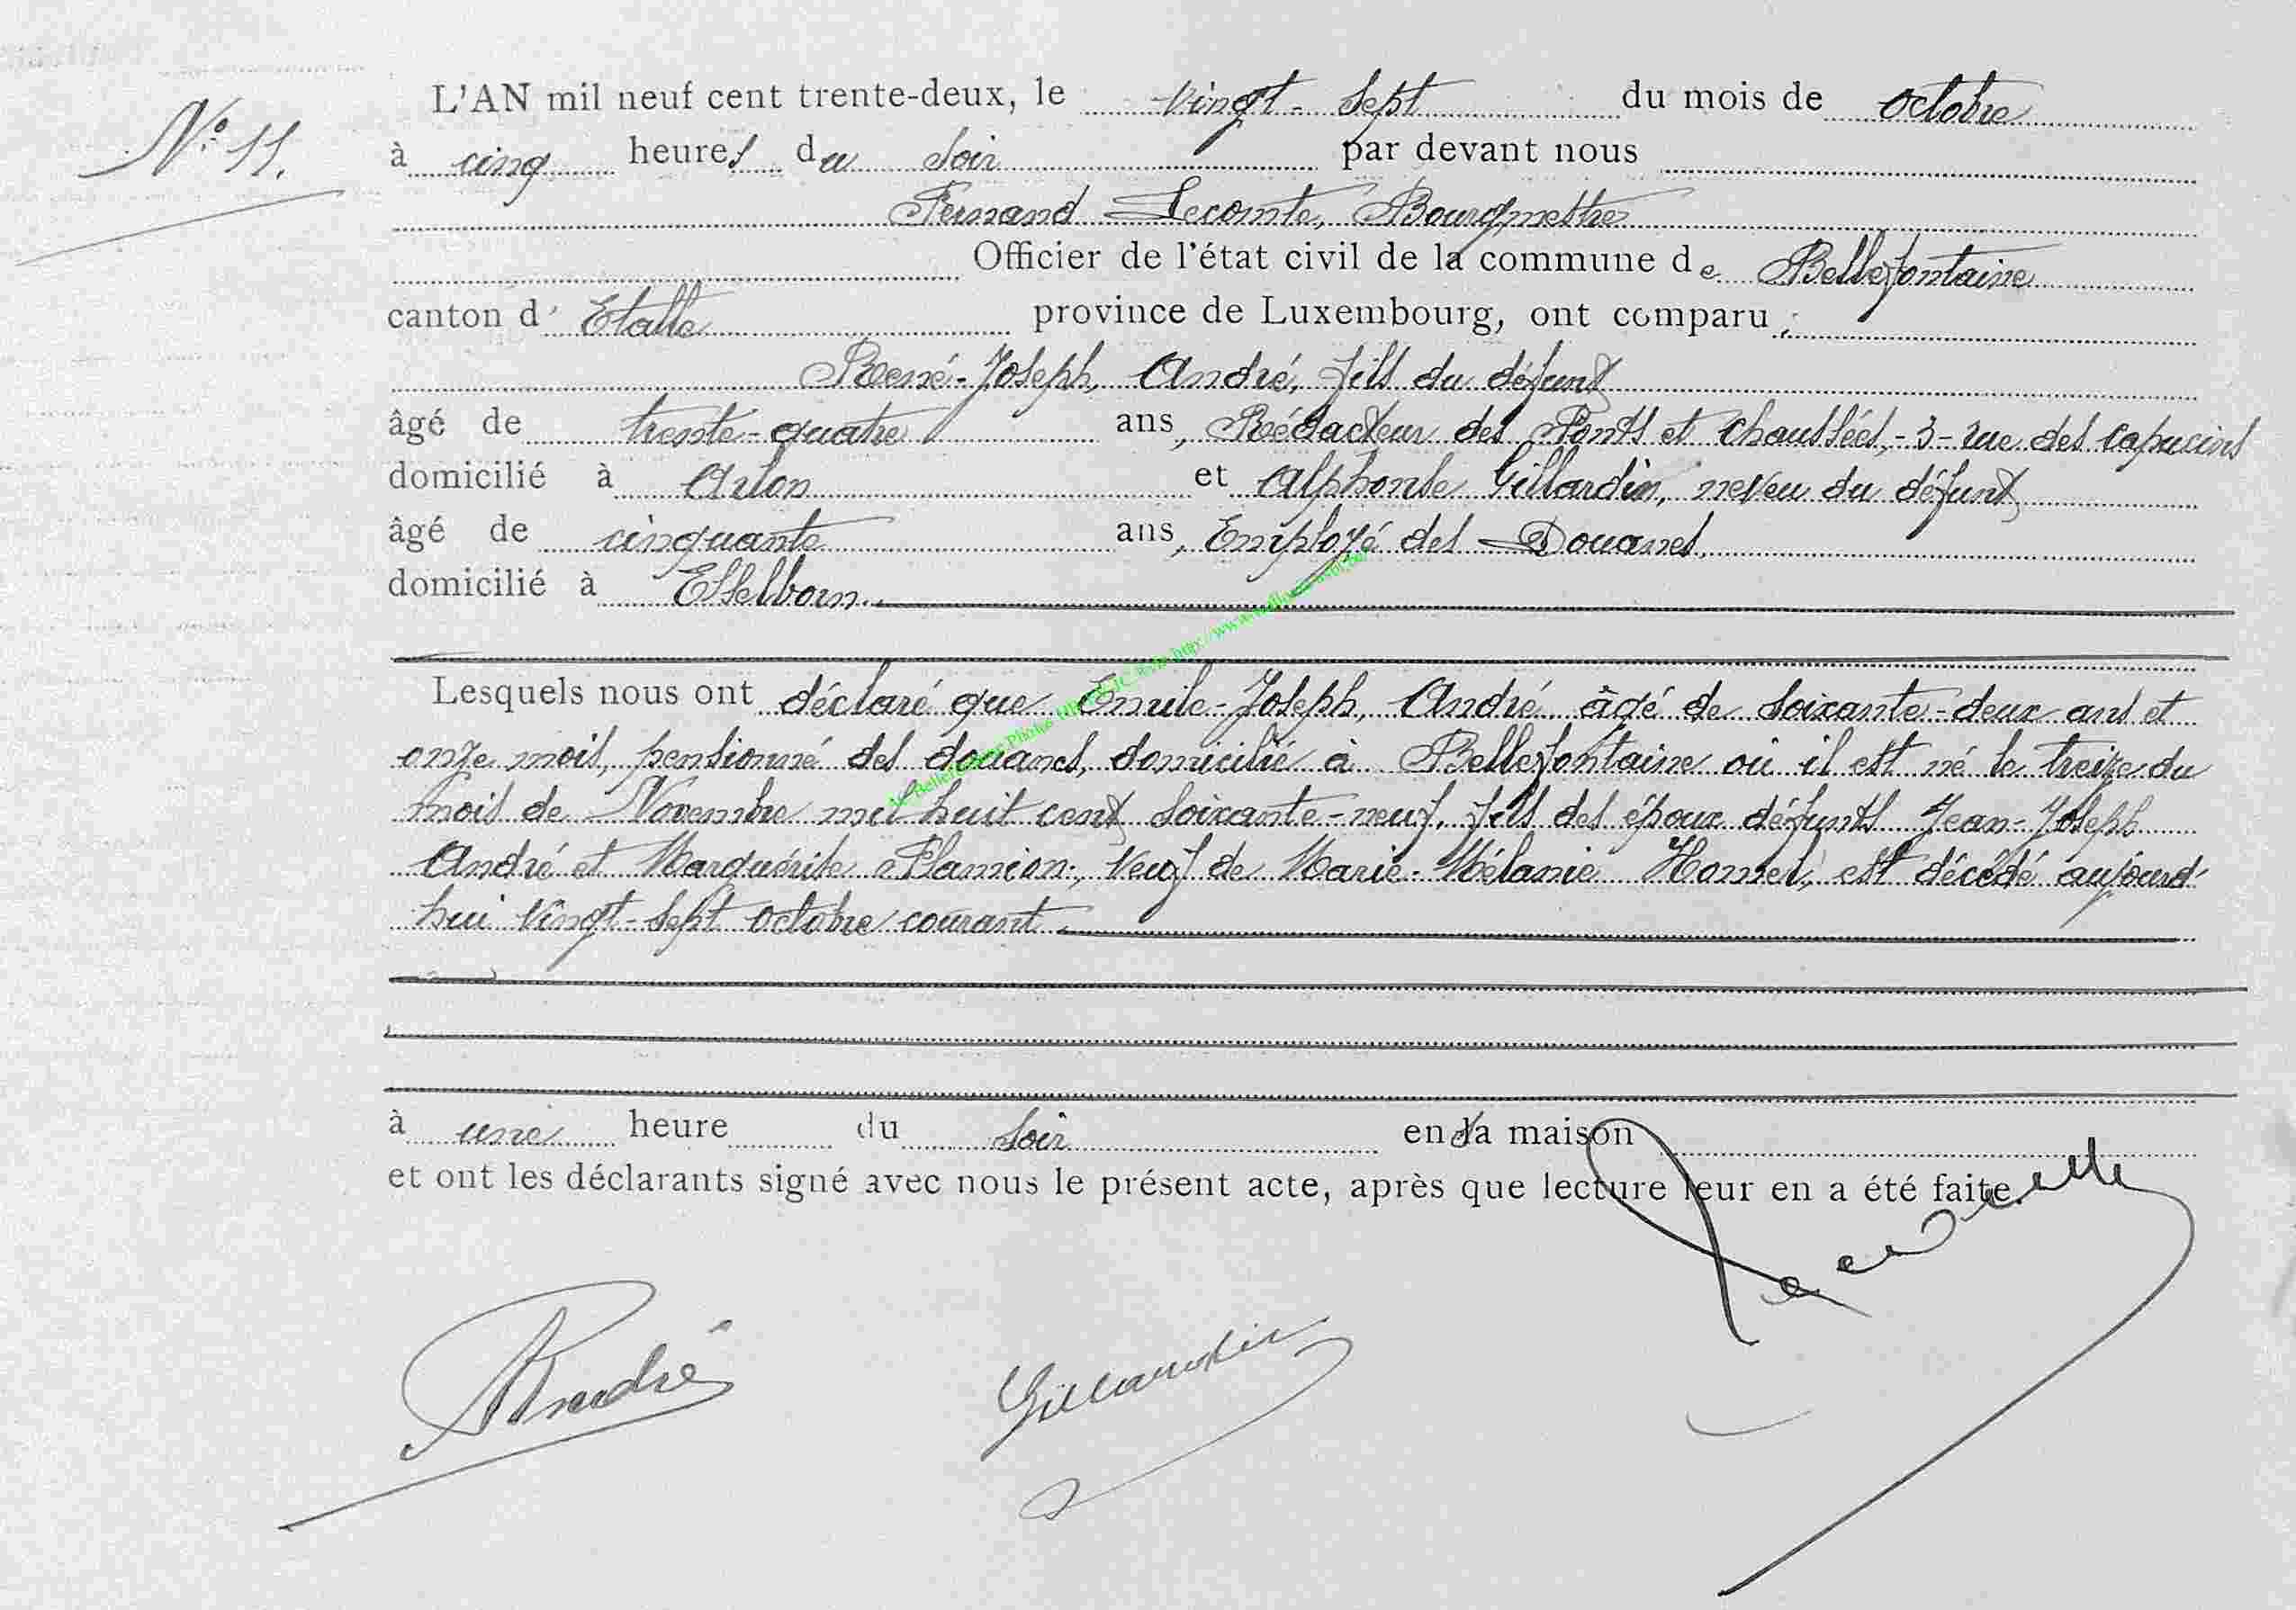 N° 11.
L'AN mil neuf cent trente-deux, le vingt-sept du mois de octobre
à cinq heures du soir par devant nous
Fernand Lecomte, Bourgmestre
Officier de l'état civil de la commune de Bellefontaine
canton d' Etalle province de Luxembourg, ont comparu :
René-Joseph, André, fils du défunt
âgé de trente-quatre ans, Rédacteur des Ponts et Chaussées, -3- rue des capucins
domicilié à Arlon et Alphonse Gillardin, neveu du défunt
âgé de cinquante ans, Employé des Douanes.
domicilié à Esselborn.
Lesquels nous ont déclaré que Emile-Joseph, André âgé de soixante-deux ans et
onze mois, pensionné des douanes, domicilié à Bellefontaine où il est né le treize du
mois de Novembre mil huit cent soixante-neuf, fils des époux défunts Jean-Joseph
André et Marguérite Flamion, veuf de Marie-Mélanie Homel, est décédé aujourd'
hui vingt-sept octobre courant.
à une heure du soir en sa maison
et ont les déclarants signé avec nous le présent acte, après que lecture leur en a été faite.
André Gillardin